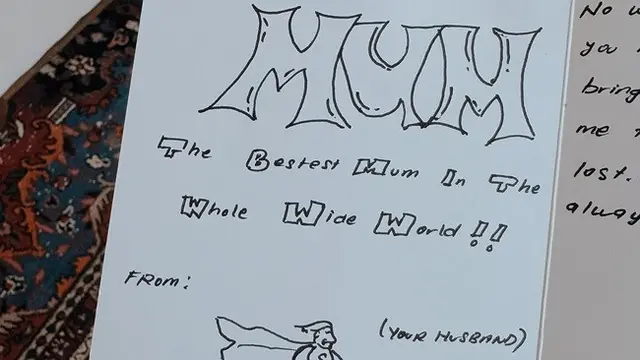 MUM
The Bestest Mum In The
Whole Wide World!!
FROM:
(YOUR HUSBAND)
No
you
bring
me
lost.
always